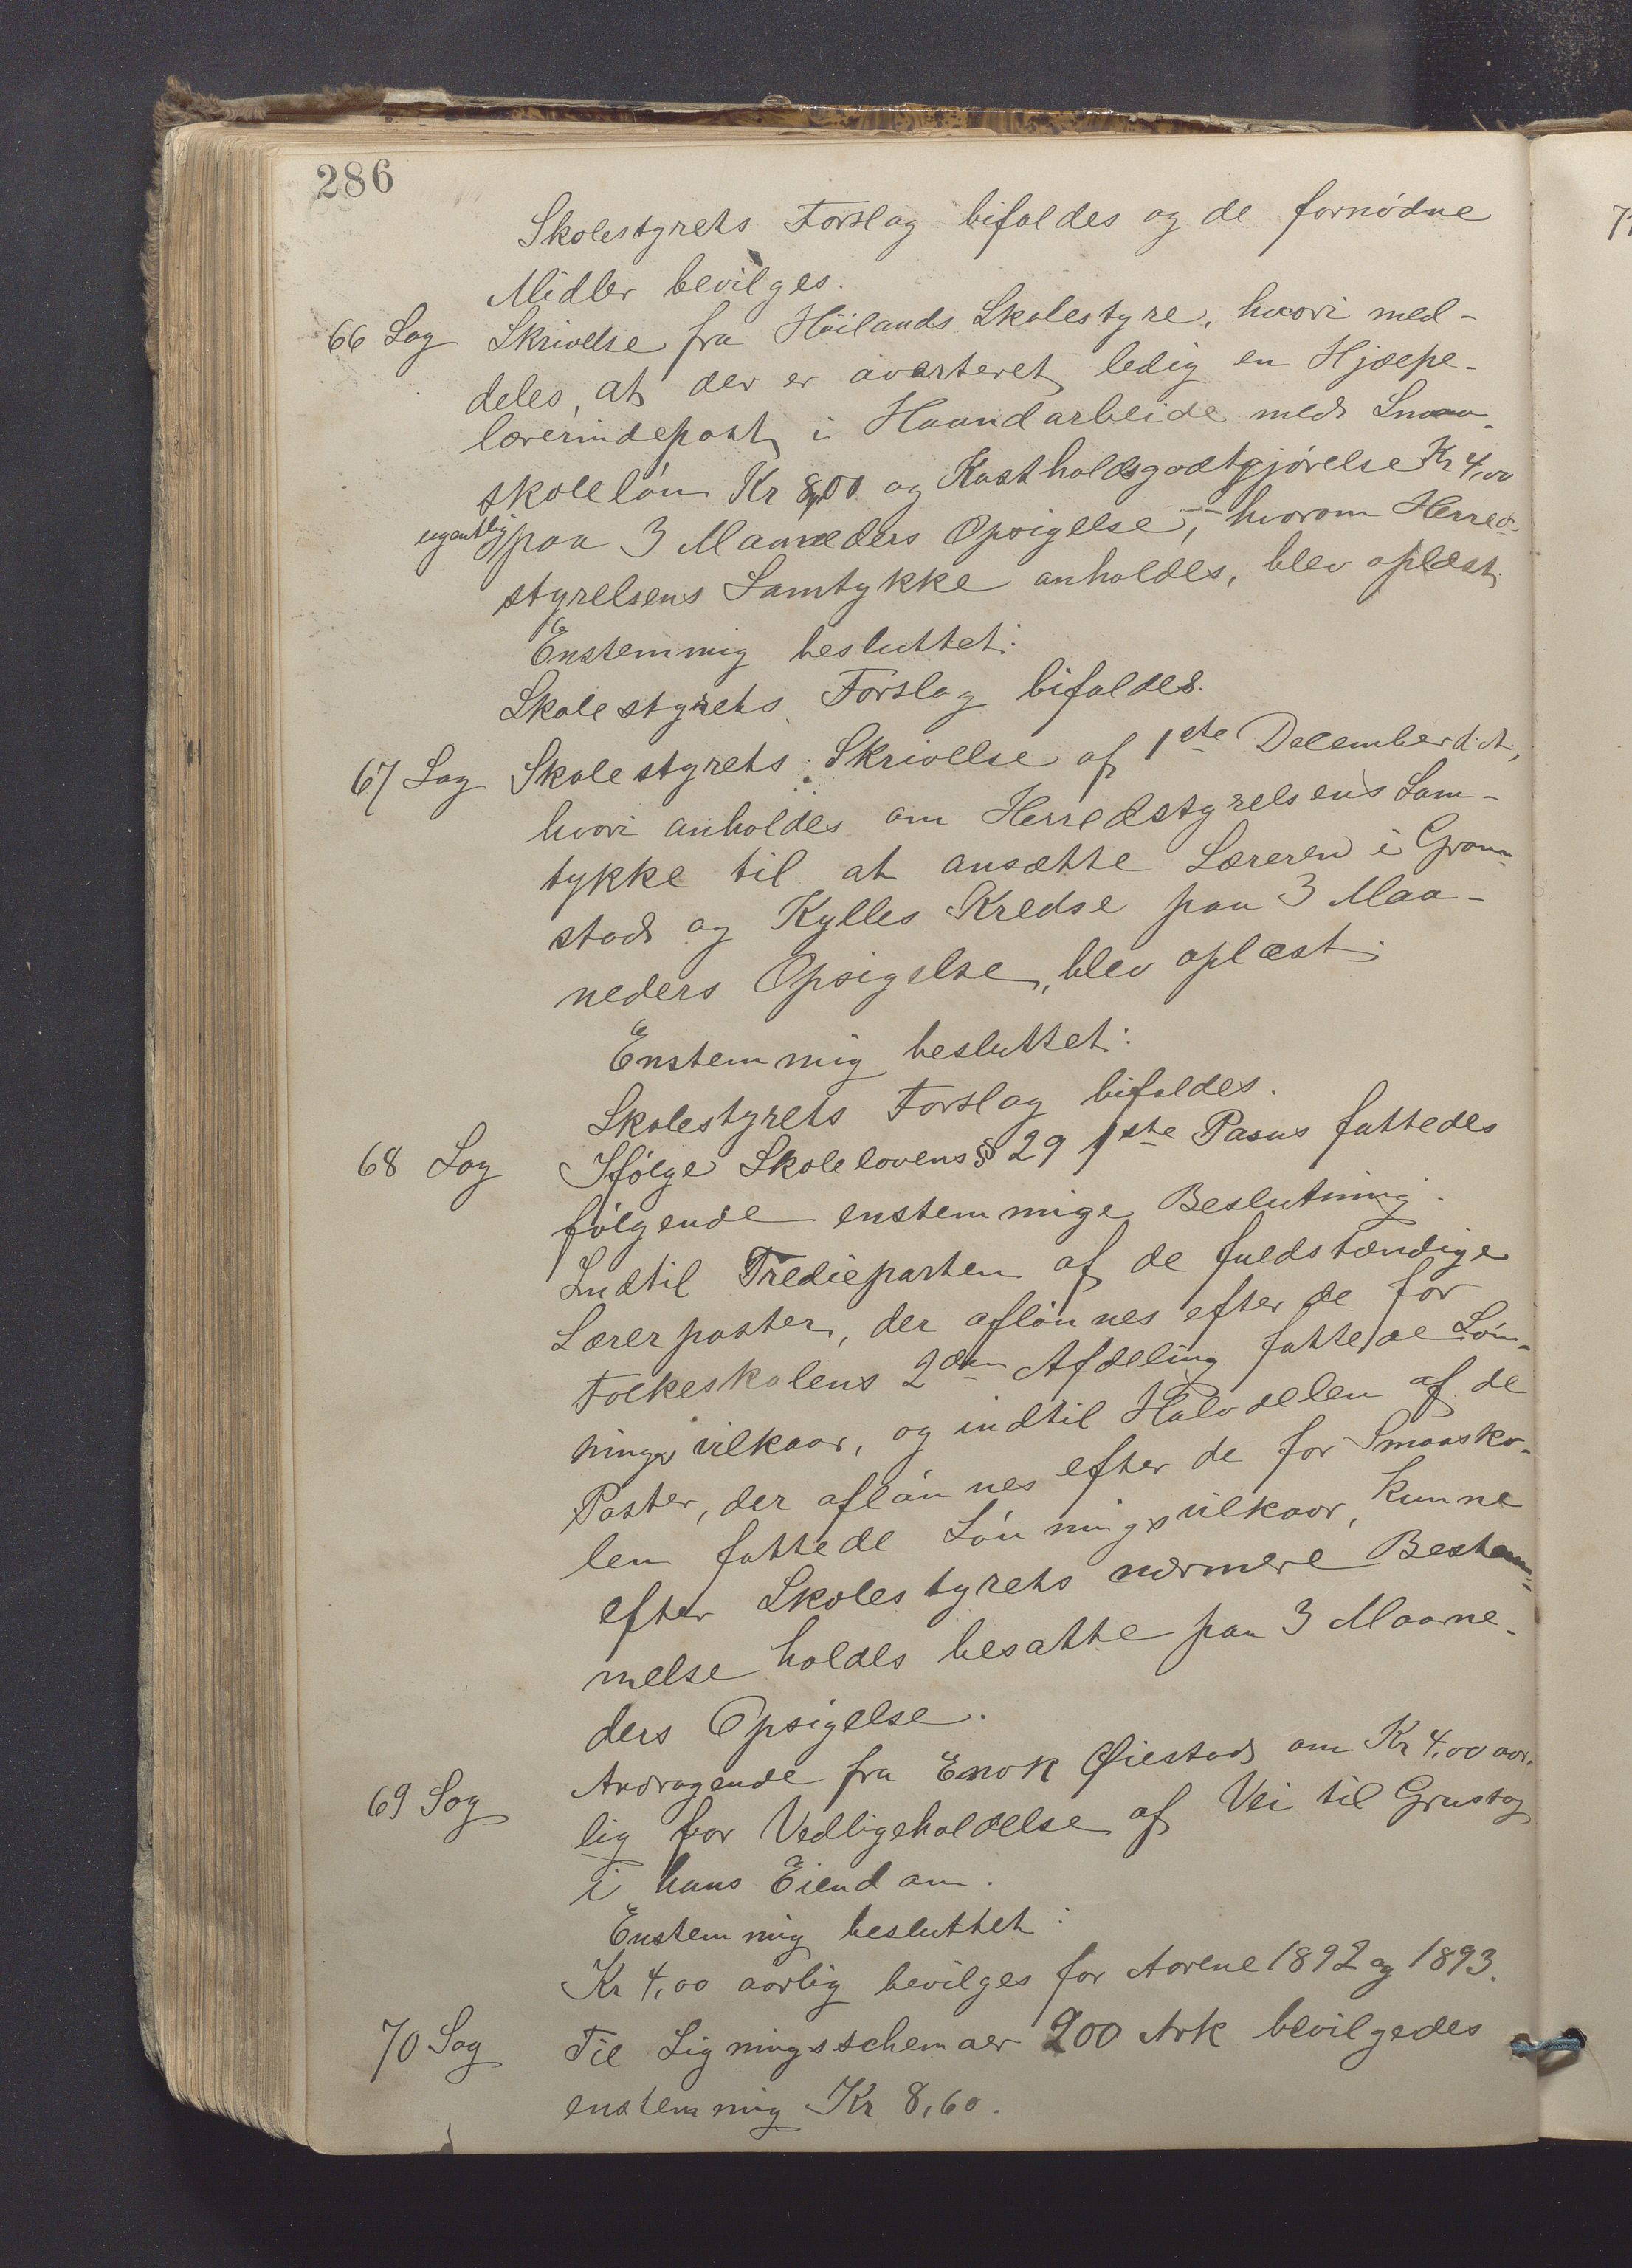 286
Skolestyrets Forslag bifaldes og de fornødne
Midler bevilges.
66 Sag Skrivelse fra Høilands Skolestyre, hvori med-
deles, at der er averteret ledig en Hjælpe-
lærerindepost i Haandarbeide med Smaa-
skoleløn Kr 8,00 og Kostholdsgodtgjørelse Kr 4,00
ugentlig paa 3 Maaneders Opsigelse, hvorom Herred-
styrelsens Samtykke anholdes, blev oplæst.
Enstemmig besluttet:
Skolestyrets Forslag bifaldes.
67 Sag Skolestyrets Skrivelse af 1ste December d. A.,
hvori anholdes om Herredstyrelsens Sam-
tykke til at ansætte Læreren i Gram-
stad og Kylles Kredse paa 3 Maa-
neders Opsigelse, blev oplæst.
Enstemmig besluttet:
Skolestyrets Forslag bifaldes.
68 Sag Ifølge Skolelovens § 29 1ste Pasus fattedes
følgende enstemmige Beslutning.
Indtil Tredieparten af de fuldstændige
Lærerposter, der aflønnes efter de for
Folkeskolens 2den Afdeling fattede Løn-
ningsvilkaar, og indtil Halvdelen af de
Poster, der aflønnes efter de for Smaasko-
len fattede Lønningsvilkaar, kunne
efter Skolestyrets nærmere Bestem-
melse holdes besatte paa 3 Maane-
ders Opsigelse.
69 Sag Andragende fra Enok Øiestad om Kr 4,00 aar-
lig for Vedligeholdelse af Vei til Grustag
i hans Eiendom.
Enstemmig besluttet:
Kr 4,00 aarlig bevilges for Aarene 1892 og 1893.
70 Sag Til Ligningsschemaer 200 Ark bevilgedes
enstemmig Kr 8,60.